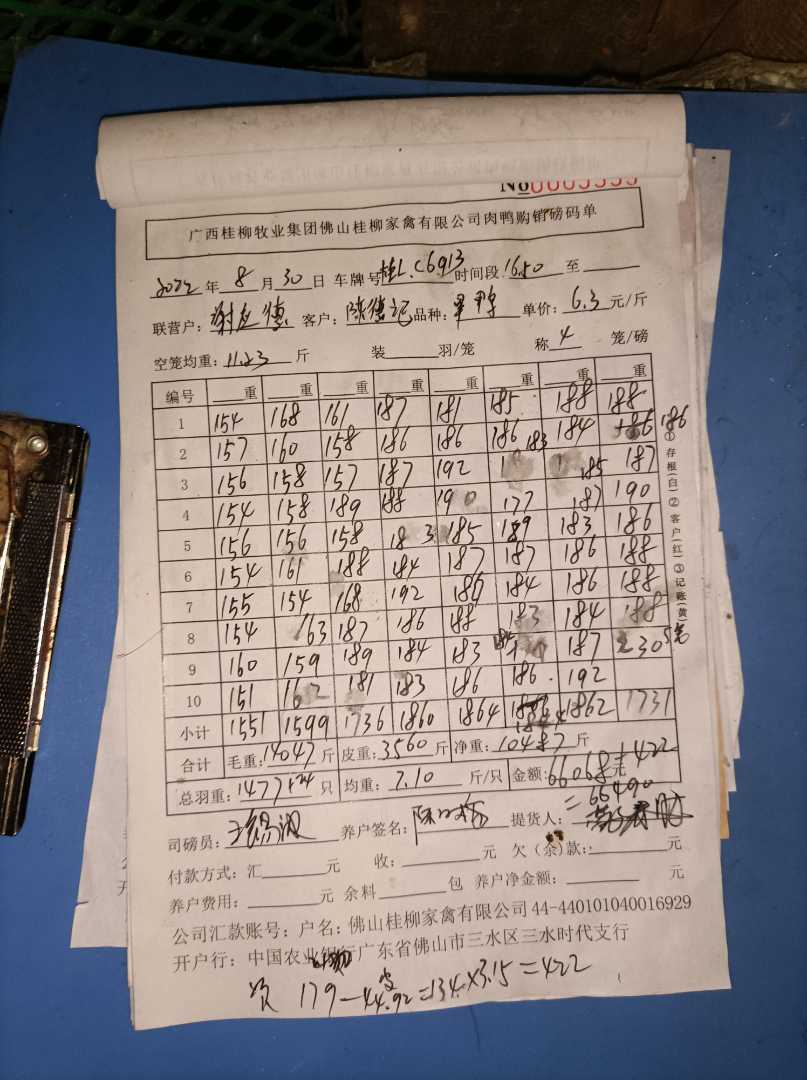 广西桂柳牧业集团佛山桂柳家禽有限公司肉鸭购销磅码单
2022年8月30日 车牌号桂L.C6913时间段16.50至
联营户:谢应德 客户:陈德记品种:单价:6.3元/斤
空笼均重:11.23斤 装 羽/笼 称4笼/磅
编号 重 重 重 重 重 重 重 重
1 154 168 161 187 181 185 188 188
2 157 160 158 186 186 186 183 184 186 186
3 156 158 157 187 192 185 187
4 154 158 189 188 190 177 187 190
5 156 156 158 183 185 189 183 186
6 154 161 188 184 187 187 186 188
7 155 154 168 192 186 184 186 188
8 154 163 187 186 188 183 184 188
9 160 159 189 184 183 187 230 5笼
10 151 162 181 183 186 186 192
小计 1551 1599 1736 1860 1864 1862 1731
合计 毛重:14047斤 皮重:3560斤 净重:10487斤
总羽重:1477+24只 均重:7.10斤/只 金额:66068元+422
=66490
司磅员: 养户签名: 提货人:
付款方式:汇 元 收: 元 欠(余)款: 元
养户费用: 元 余料 包 养户净金额: 元
公司汇款账号:户名:佛山桂柳家禽有限公司44-440101040016929
开户行:中国农业银行广东省佛山市三水区三水时代支行
179-44.92=134×3.15=422
①存根(白)②客户(红)③记账(黄)